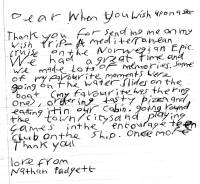 Dear When You Wish upon a star
Thank you for sending me on my
wish trip - A mediterranean
cruise on the Norwegian Epic.
We had a great time and
we made lots of memories. some
of my favourite moments were
going on the water slides on the
boat (my favourite was the ring
one), ordering tasty pizza and
eating it in our cabin, going round
the town/citys and playing
games in the encourage teen
club on the ship. Once more
Thank you!
love from
Nathan Padgett